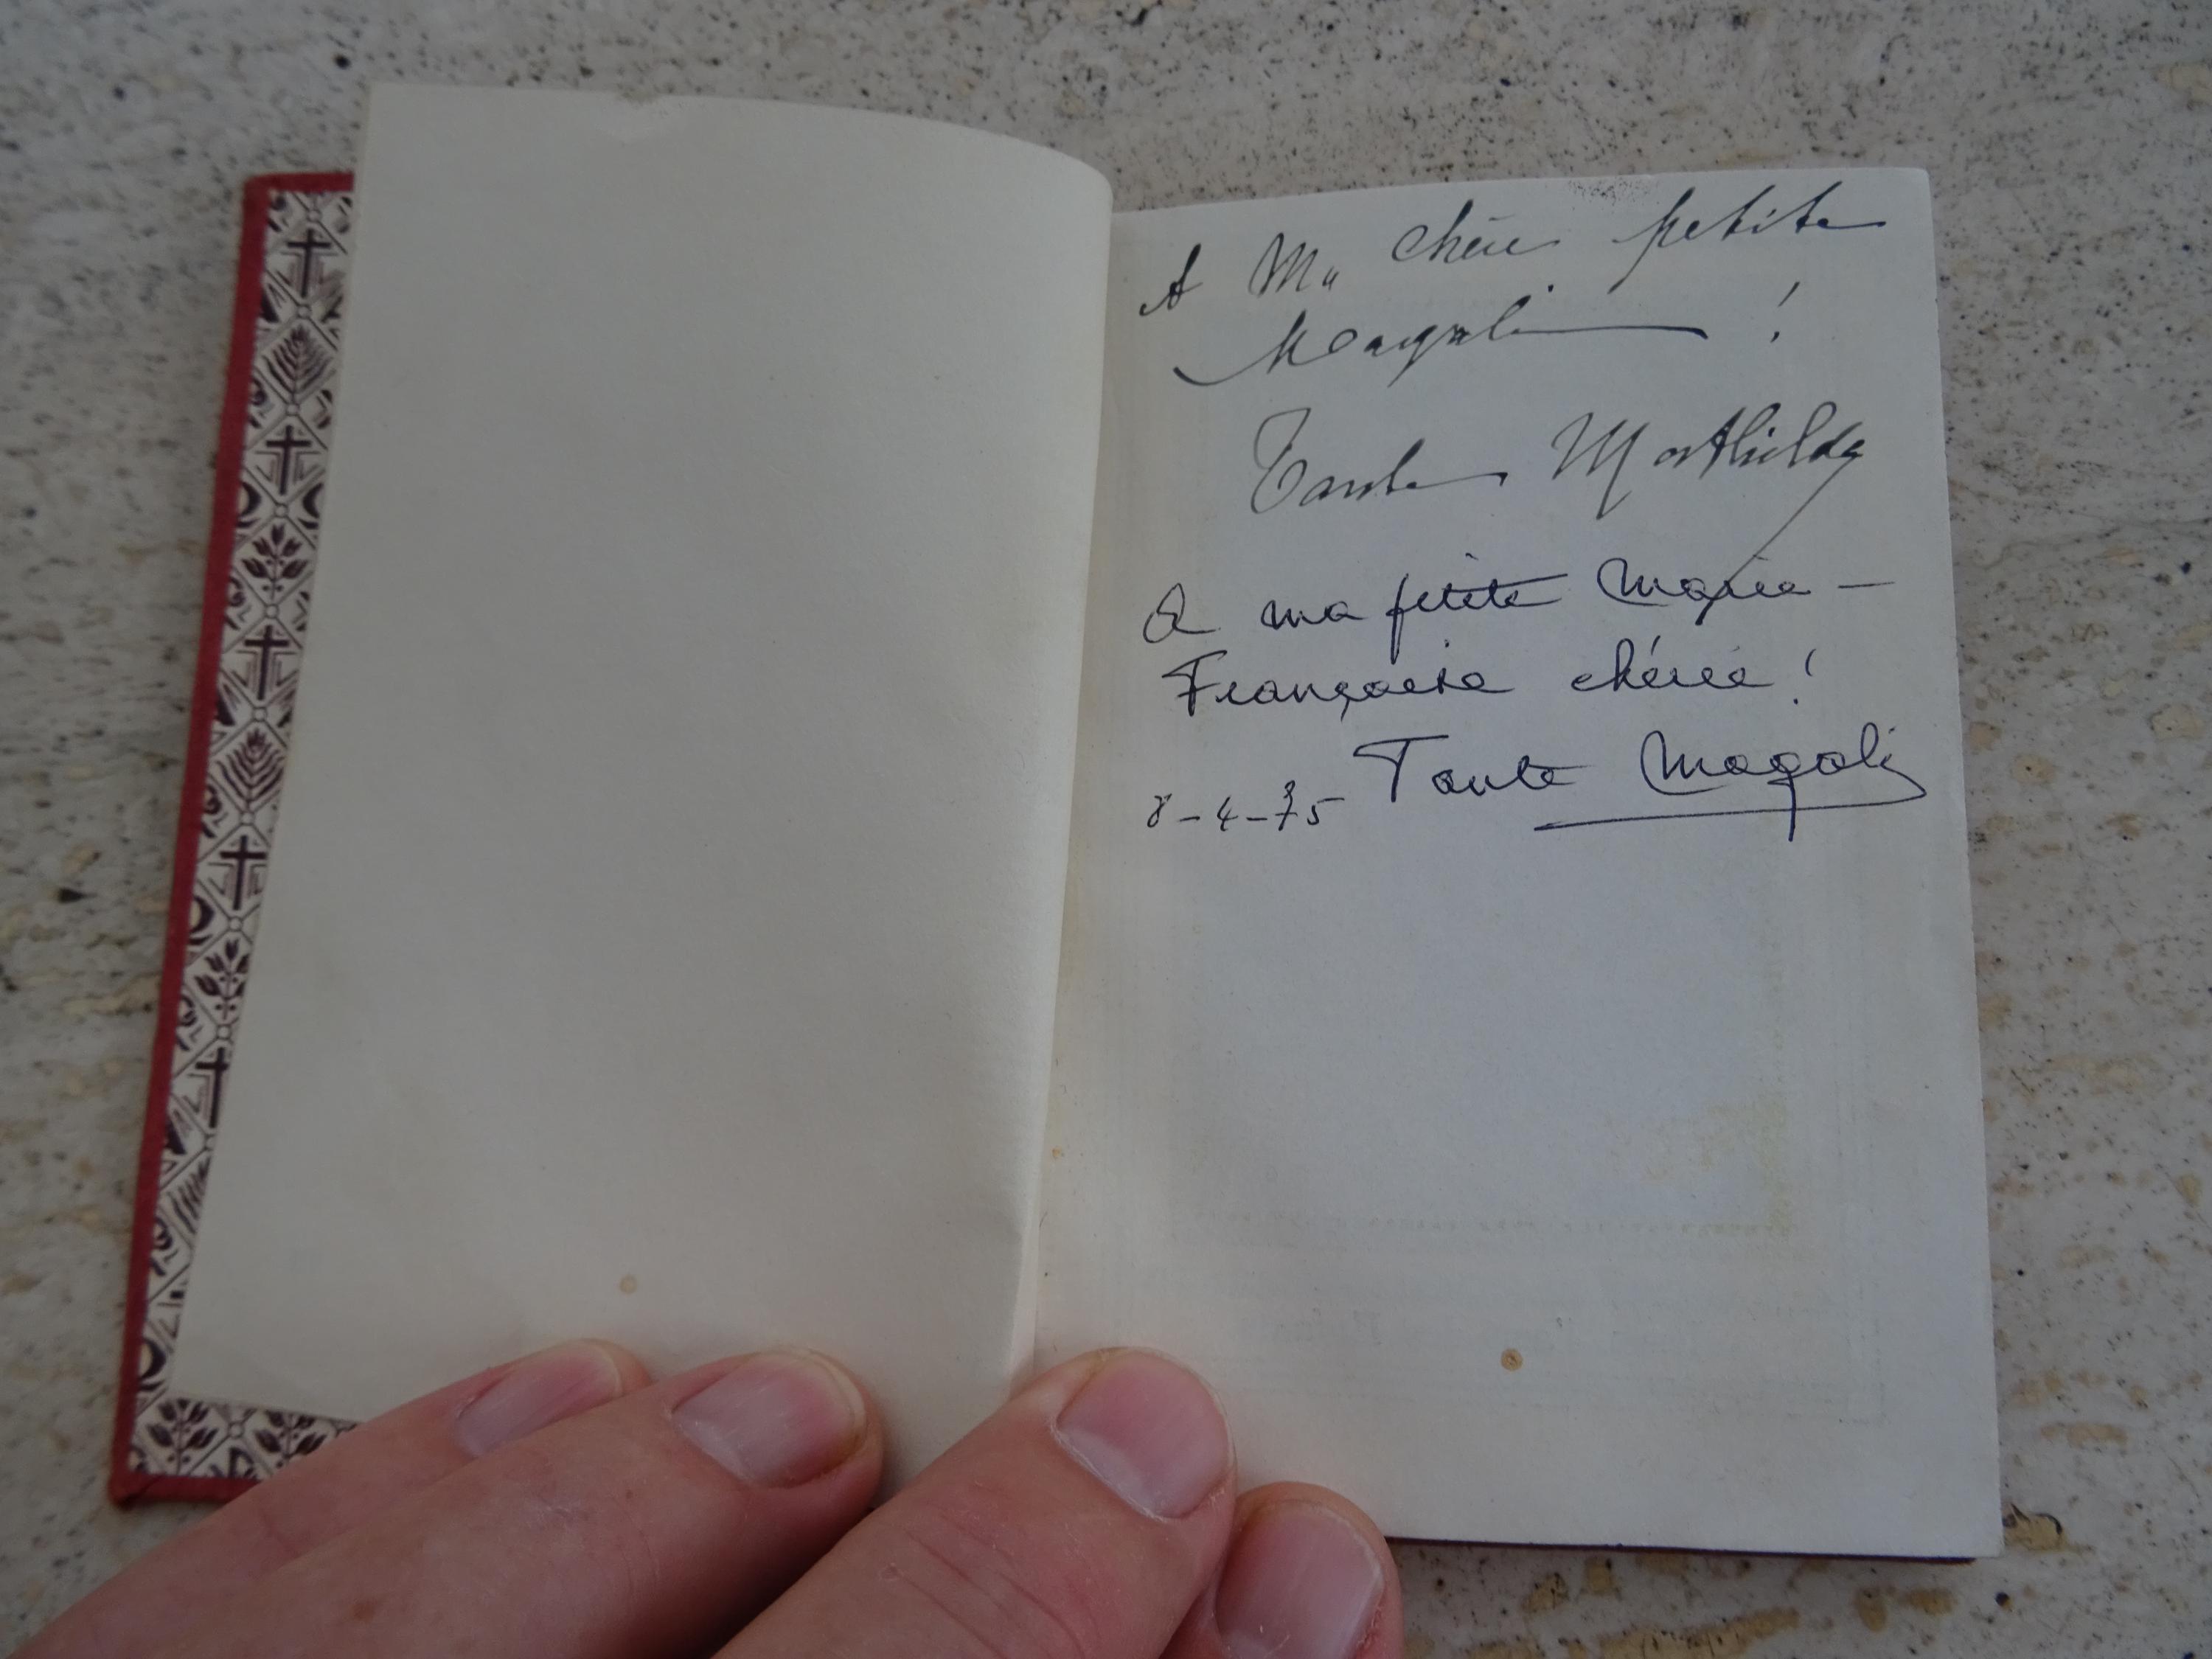 A Ma chère petite
Magali !
Tante Mathilde
A ma petite Marie-
Françoise chérie !
Tante Magali
8-4-75